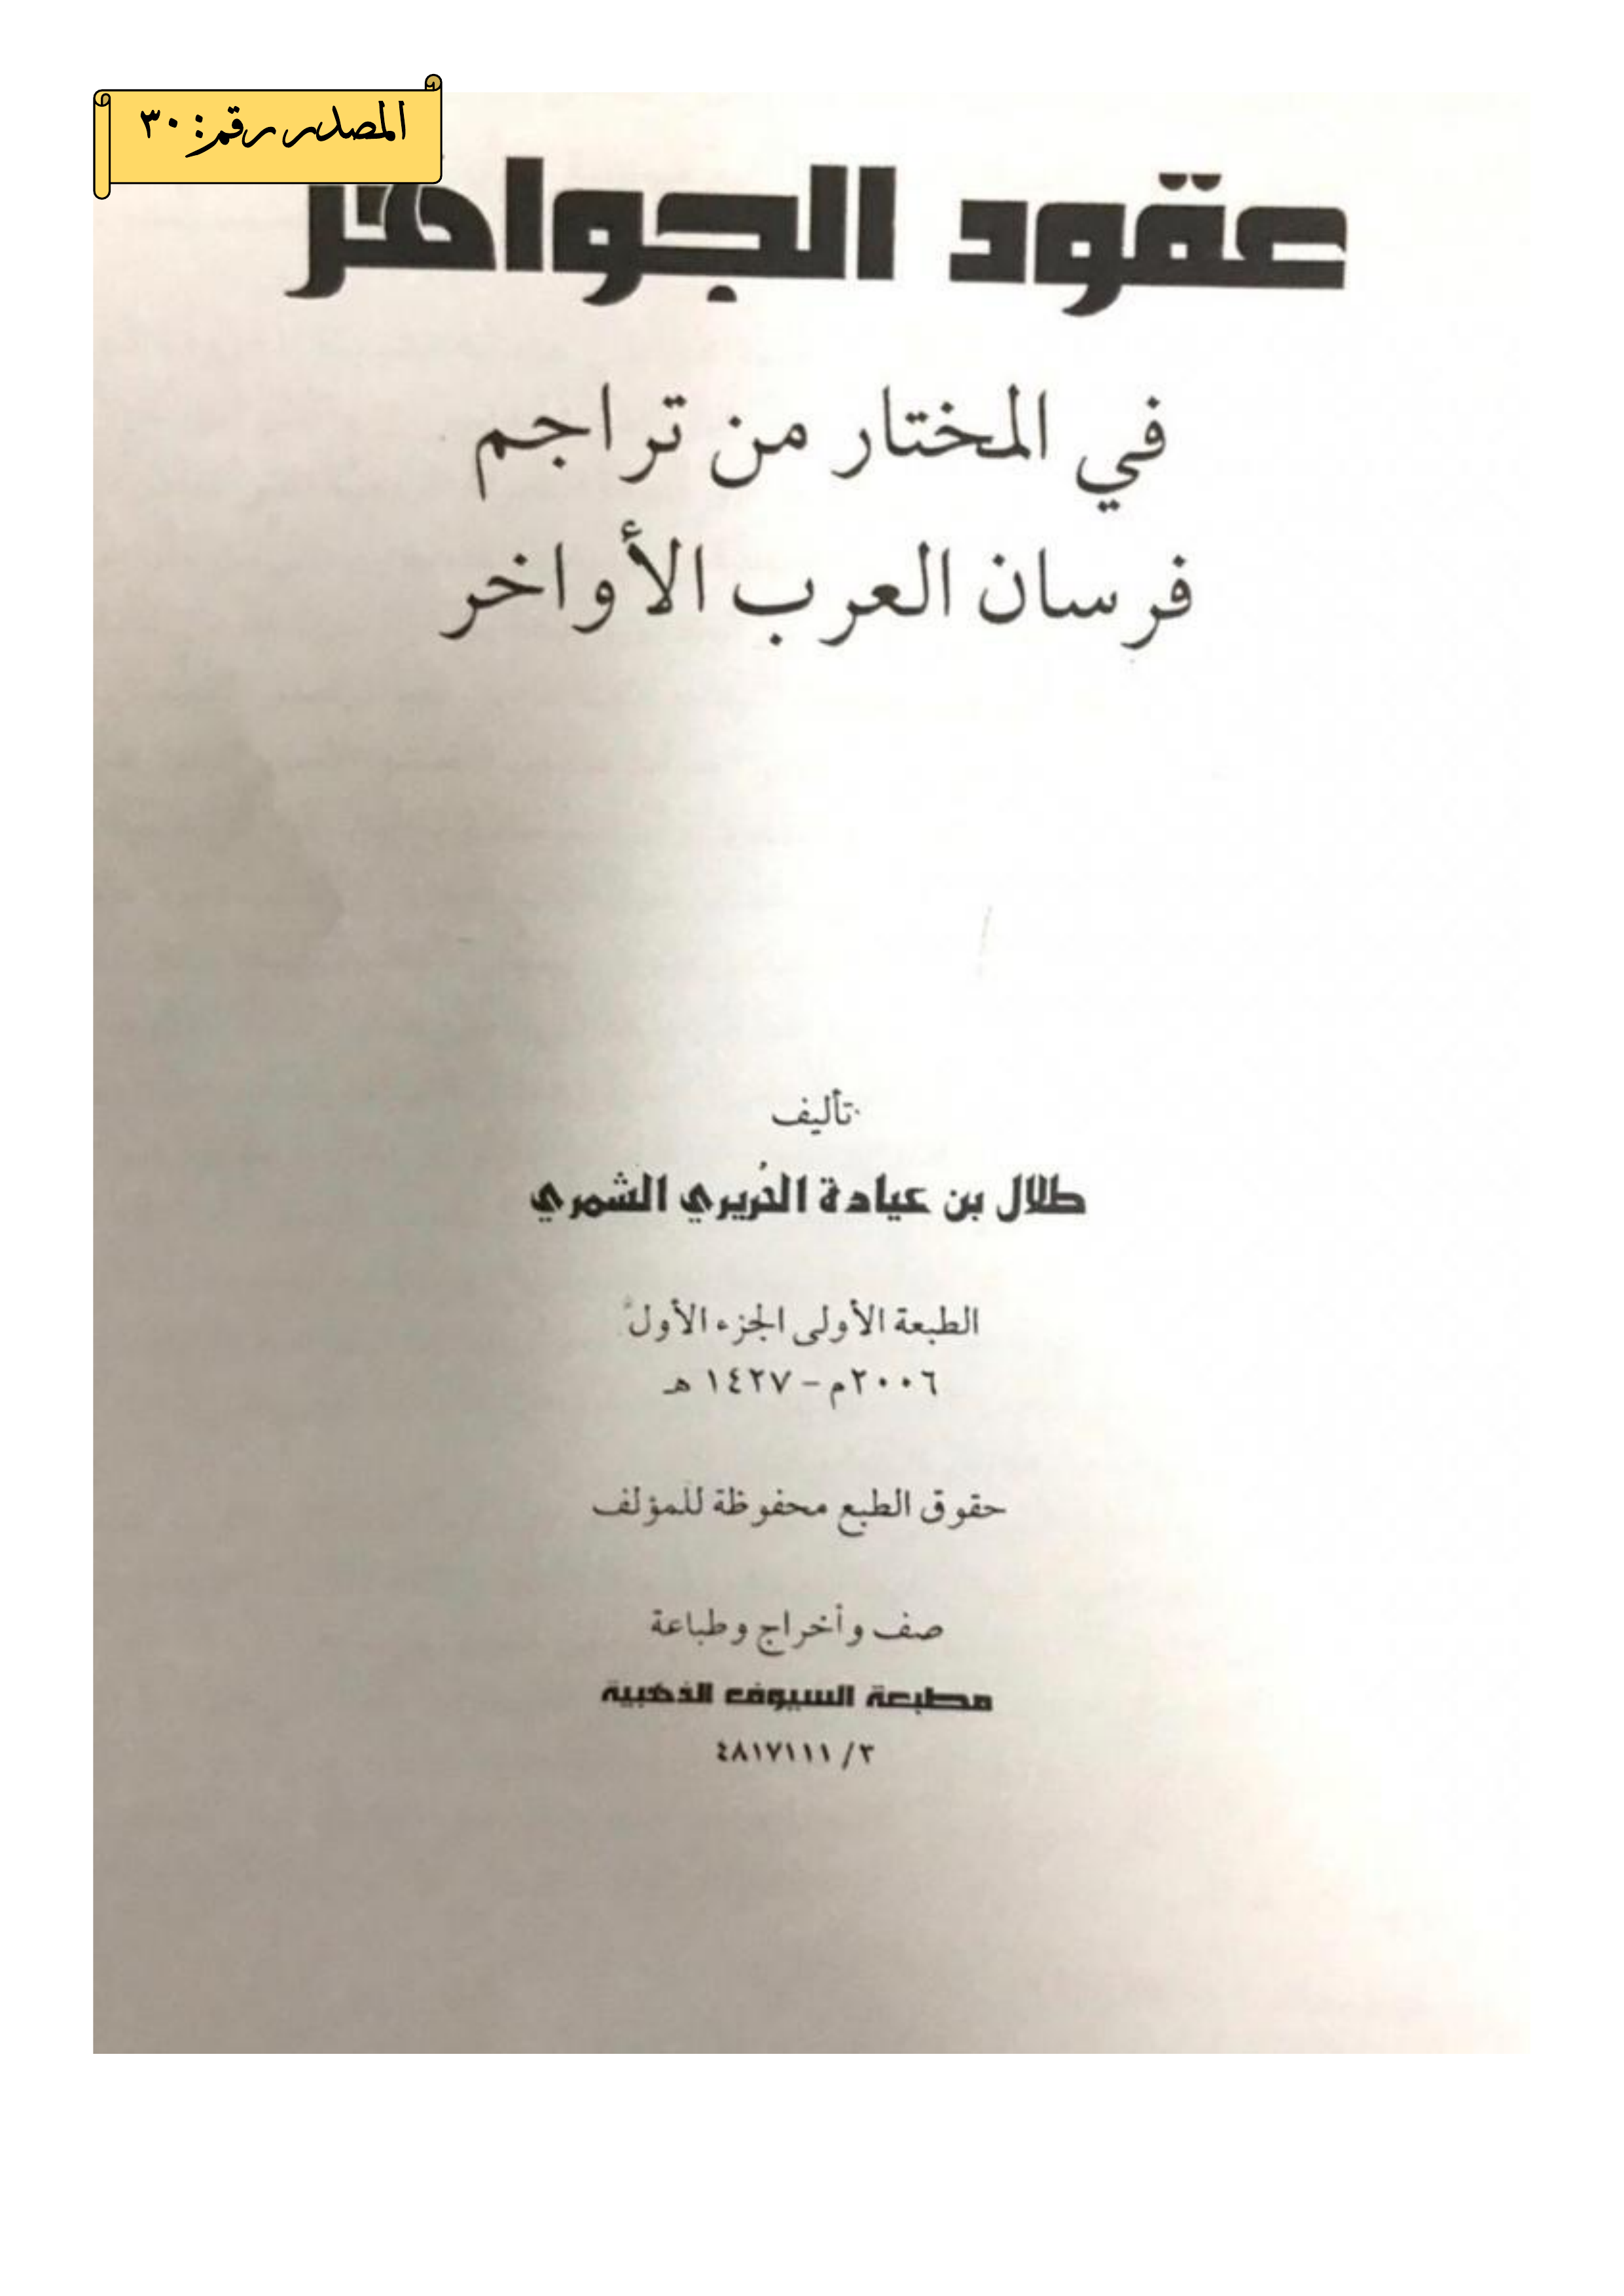 المصدر رقم: ٣٠
عقود الجواهر
في المختار من تراجم
فرسان العرب الأواخر
تأليف
طلال بن عيادة الحُريري الشمري
الطبعة الأولى الجزء الأول
٢٠٠٦م - ١٤٢٧ هـ
حقوق الطبع محفوظة للمؤلف
صف وأخراج وطباعة
مطبعة السيوف الذهبية
٤٨١٧١١١ /٣